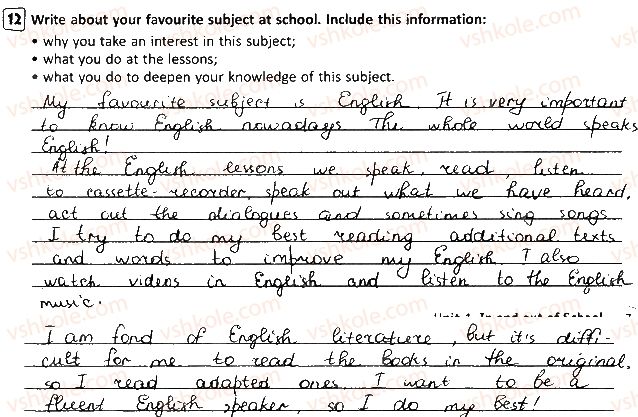 12 Write about your favourite subject at school. Include this information:
• why you take an interest in this subject;
• what you do at the lessons;
• what you do to deepen your knowledge of this subject.
My favourite subject is English. It is very important
to know English nowadays The whole world speaks
English!
At the English lessons we speak, read, listen
to cassette-recorder, speak out what we have heard,
act out the dialogues and sometimes sing songs
I try to do my best reading additional texts
and words to improve my English. I also
watch videos in English and listen to the English
music.
I am fond of English literature, but it's diffi-
cult for me to read the books in the original,
so I read adapted ones. I want to be a
fluent English speaker, so I do my best!
vshkole.com